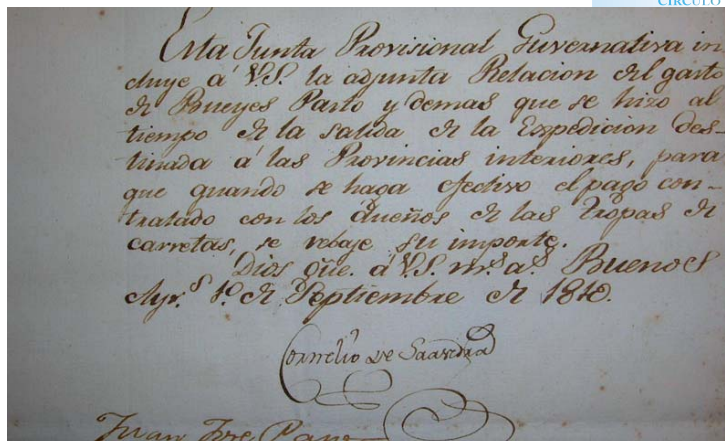 CÍRCULO
Esta Junta Provisional Guvernativa in
cluye á V.S. la adjunta Relacion del gasto
de Bueyes Pasto y demas que se hizo al
tiempo de la salida de la Expedicion des-
tinada á las Provincias interiores, para
que quando se haga efectivo el pago con-
tratado con los dueños de las Tropas de
carretas, se rebaje su importe.
Dios gũe. á V.S. m.s a.s Buenos
Ayr.s 1.o de Septiembre de 1810.
Cornelio de Saavedra
Juan Jose Paso